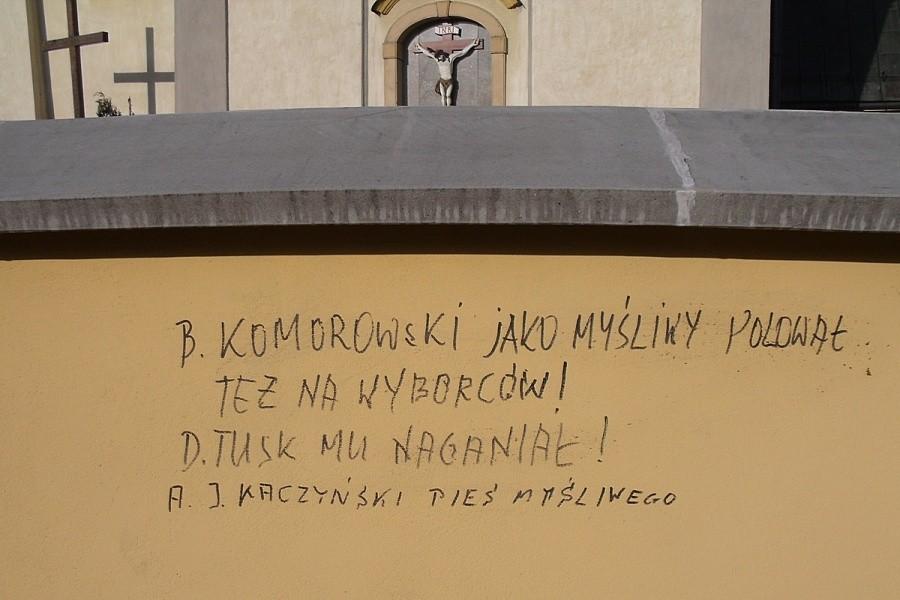 INRI
B. KOMOROWSKI JAKO MYŚLIWY POLOWAŁ
TEŻ NA WYBORCÓW!
D. TUSK MU NAGANIAŁ!
A. J. KACZYŃSKI PIEŚ MYŚLIWEGO